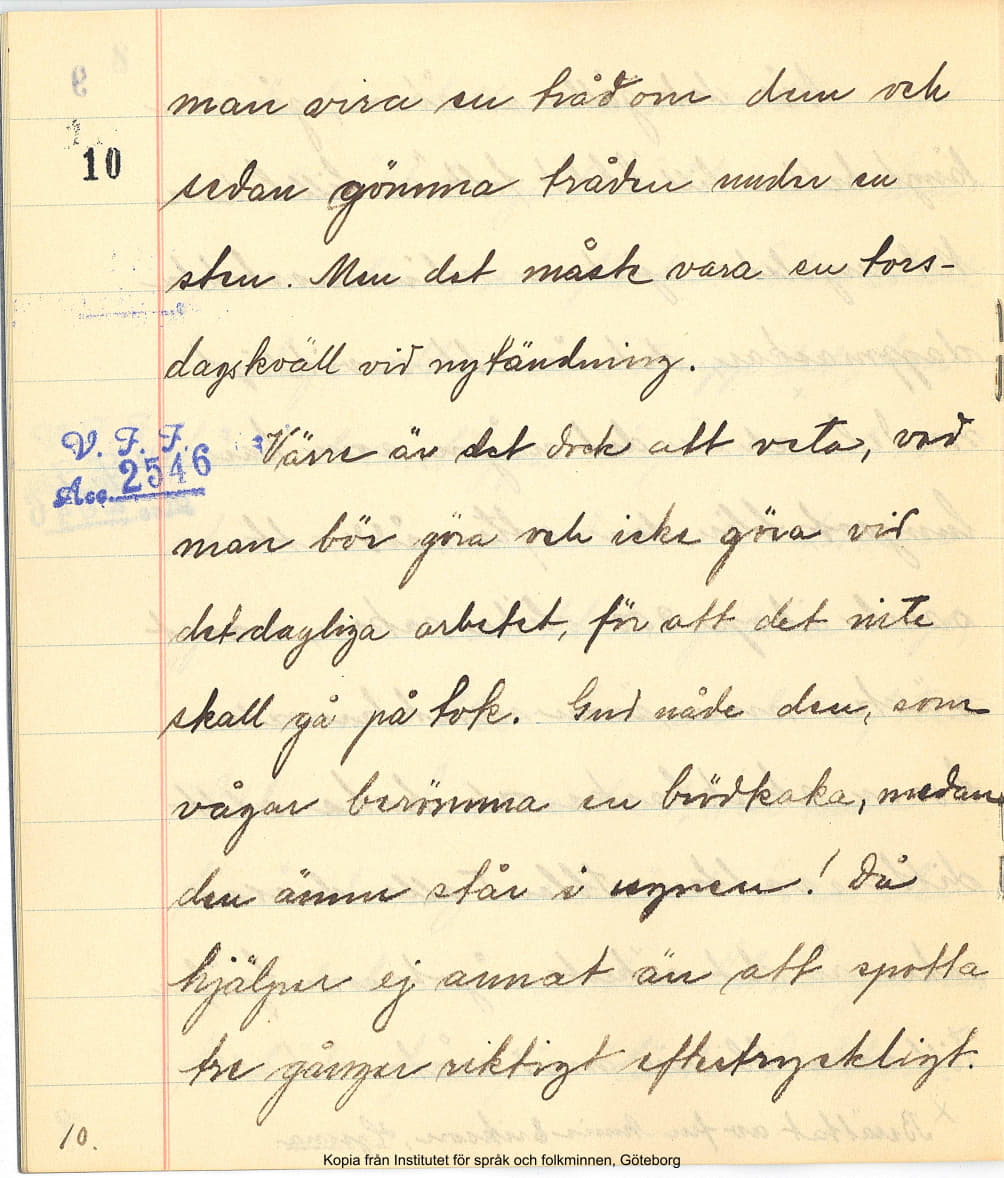 10
man vira en tråd om den och
sedan gömma tråden under en
sten. Men det måste vara en tors-
dagskväll vid nytändning.
V. F. F.
Acc. 2546
Värre är det dock att veta, vad
man bör göra och icke göra vid
det dagliga arbetet, för att det inte
skall gå på tok. Gud nåde den, som
vågar berömma en brödkaka, medan
den ännu står i ugnen! Då
hjälper ej annat än att spotta
tre gånger riktigt eftertryckligt.
10.
Kopia från Institutet för språk och folkminnen, Göteborg